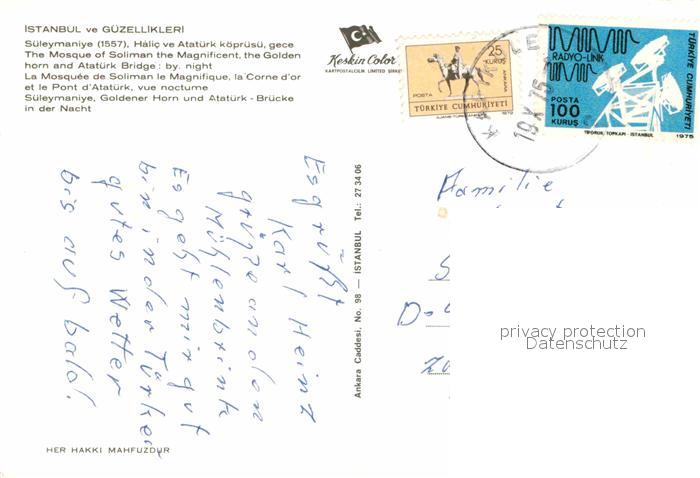 İSTANBUL ve GÜZELLİKLERİ
Süleymaniye (1557), Háliç ve Atatürk köprüsü, gece
The Mosque of Soliman the Magnificent, the Golden
horn and Atatürk Bridge : by. night
La Mosquée de Soliman le Magnifique, la Corne d'or
et le Pont d'Atatürk, vue nocturne
Süleymaniye, Goldener Horn und Atatürk - Brücke
in der Nacht
Keskin Color
KARTPOSTALCILIK LIMITED ŞİRKETİ
25
KURUŞ
ANKARA
POSTA
TÜRKİYE CUMHURİYETİ
RADYO-LİNK
POSTA
100
KURUŞ
TÜRKİYE CUMHURİYETİ
1975
19.X.75
Ankara Caddesi, No. 98 — İSTANBUL Tel.: 27 34 06
Es grüßt
Karl Heinz
grüße an den
Mühlenbrink
Es geht mir gut
bin in der Türkei
gutes Wetter
bis auf bald!
Familie
S
D-
privacy protection
Datenschutz
HER HAKKI MAHFUZDUR